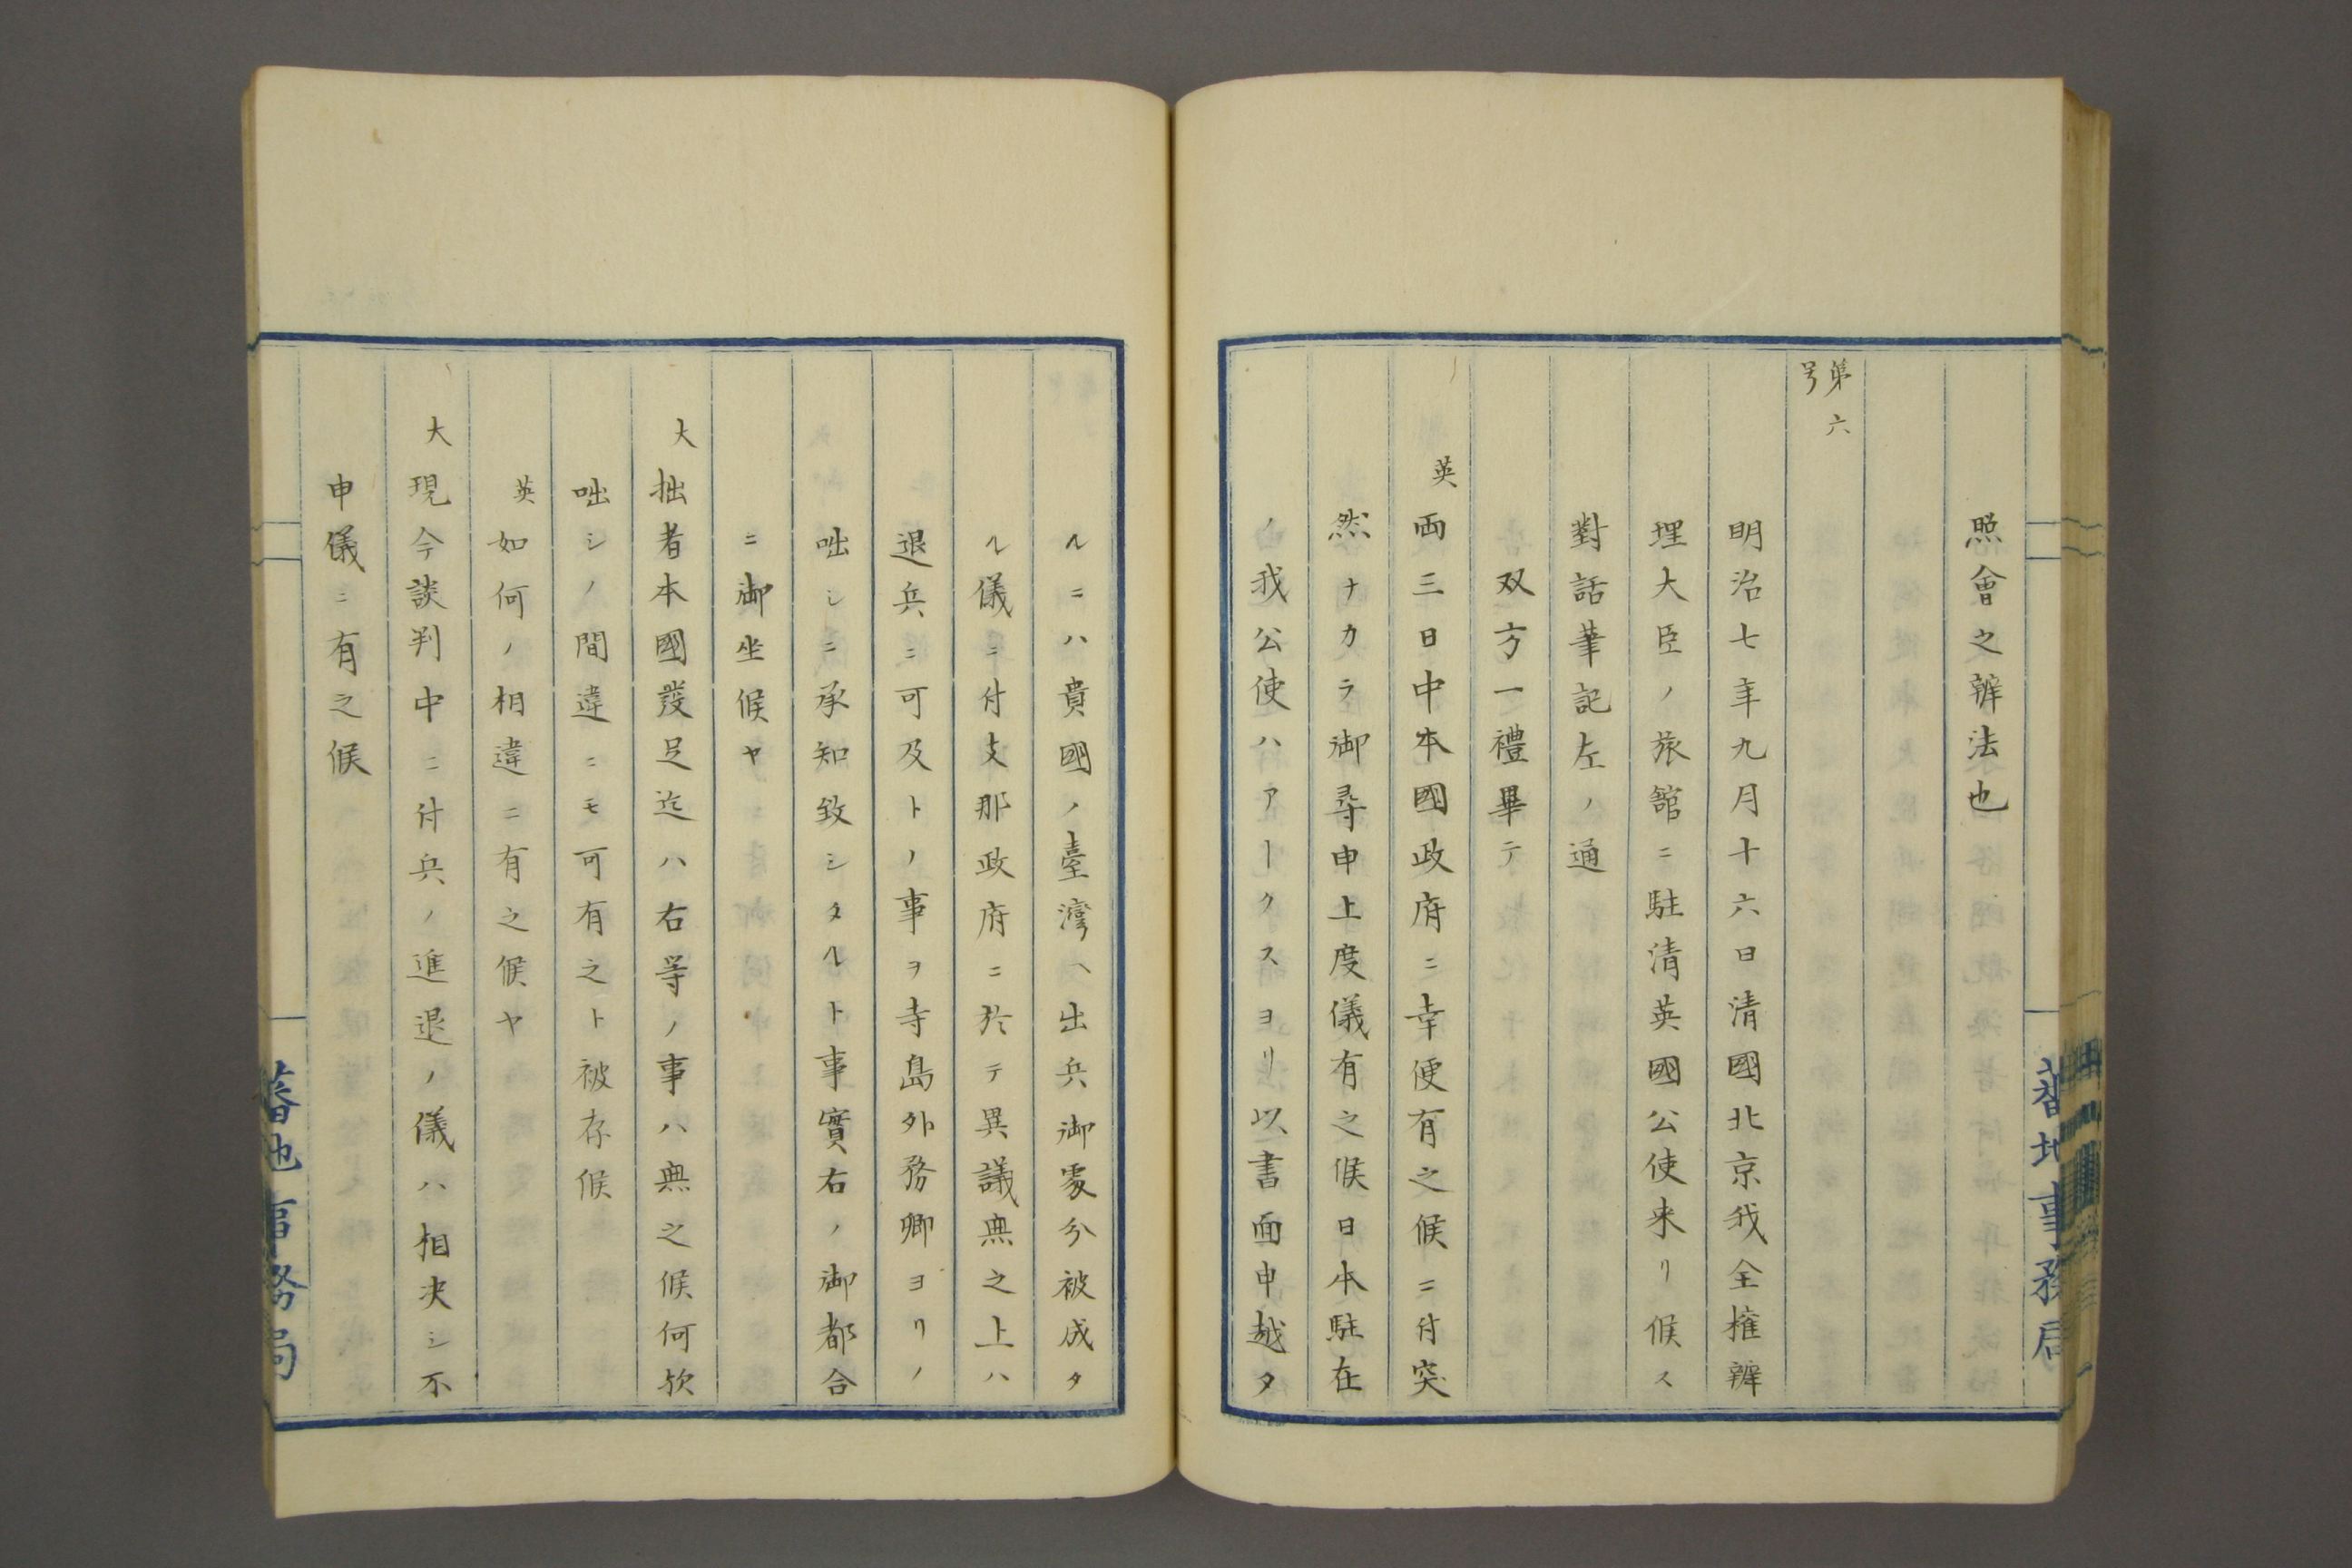 照會之辨法也
第六
号
明治七年九月十六日清國北京我全権辨
理大臣ノ旅舘ニ駐清英國公使来リ候ス
對話筆記左ノ通
双方一禮畢テ
英 両三日中本國政府ニ幸便有之候ニ付突
然ナカラ御尋申上度儀有之候日本駐在
ノ我公使ハアークスヨリ以書面申越タ
ルニハ貴國ノ臺灣ヘ出兵御處分被成タ
ル儀ニ付支那政府ニ於テ異議無之上ハ
退兵ニ可及トノ事ヲ寺島外務卿ヨリノ
咄シニ承知致シタルト事實右ノ御都合
ニ御坐候ヤ
大 拙者本國發足迄ハ右等ノ事ハ無之候何歟
咄シノ間違ニモ可有之ト被存候
英 如何ノ相違ニ有之候ヤ
大 現今談判中ニ付兵ノ進退ノ儀ハ相决シ不
申儀ニ有之候
蕃地事務局
蕃地事務局